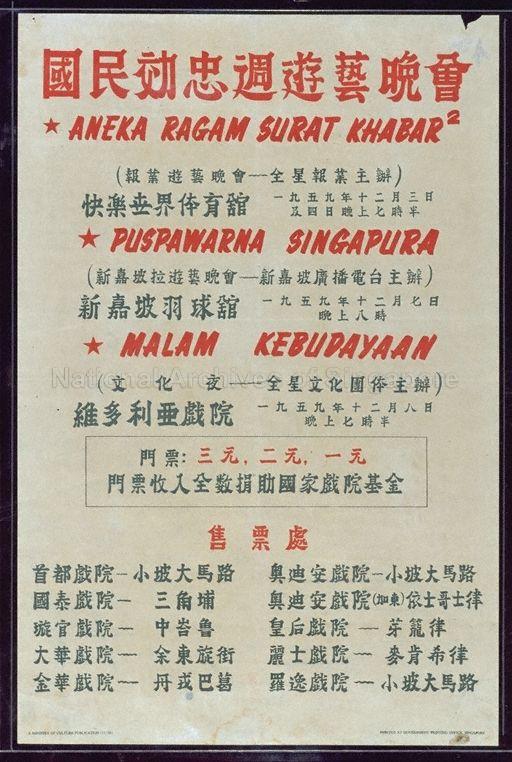 國民効忠週遊藝晚會
★ ANEKA RAGAM SURAT KHABAR²
(報業遊藝晚會——全星報業主辦)
快樂世界体育舘
一九五九年十二月三日
及四日晚上七時半
★ PUSPAWARNA SINGAPURA
(新嘉坡拉遊藝晚會—新嘉坡廣播電台主辦)
新嘉坡羽球舘
一九五九年十二月七日
晚上八時
★ MALAM KEBUDAYAAN
(文化夜——全星文化團体主辦)
維多利亜戲院
一九五九年十二月八日
晚上七時半
National Archives of Singapore
門票: 三元, 二元, 一元
門票收入全数捐助國家戲院基金
售票處
首都戲院—小坡大馬路
國泰戲院— 三角埔
璇宫戲院— 中峇魯
大華戲院— 余東旋街
金華戲院— 丹戎巴葛
奧迪安戲院—小坡大馬路
奧迪安戲院(加東)依士哥士律
皇后戲院— 芽籠律
麗士戲院— 麥肯希律
羅逸戲院— 小坡大馬路
A MINISTRY OF CULTURE PUBLICATION
PRINTED AT GOVERNMENT PRINTING OFFICE, SINGAPORE